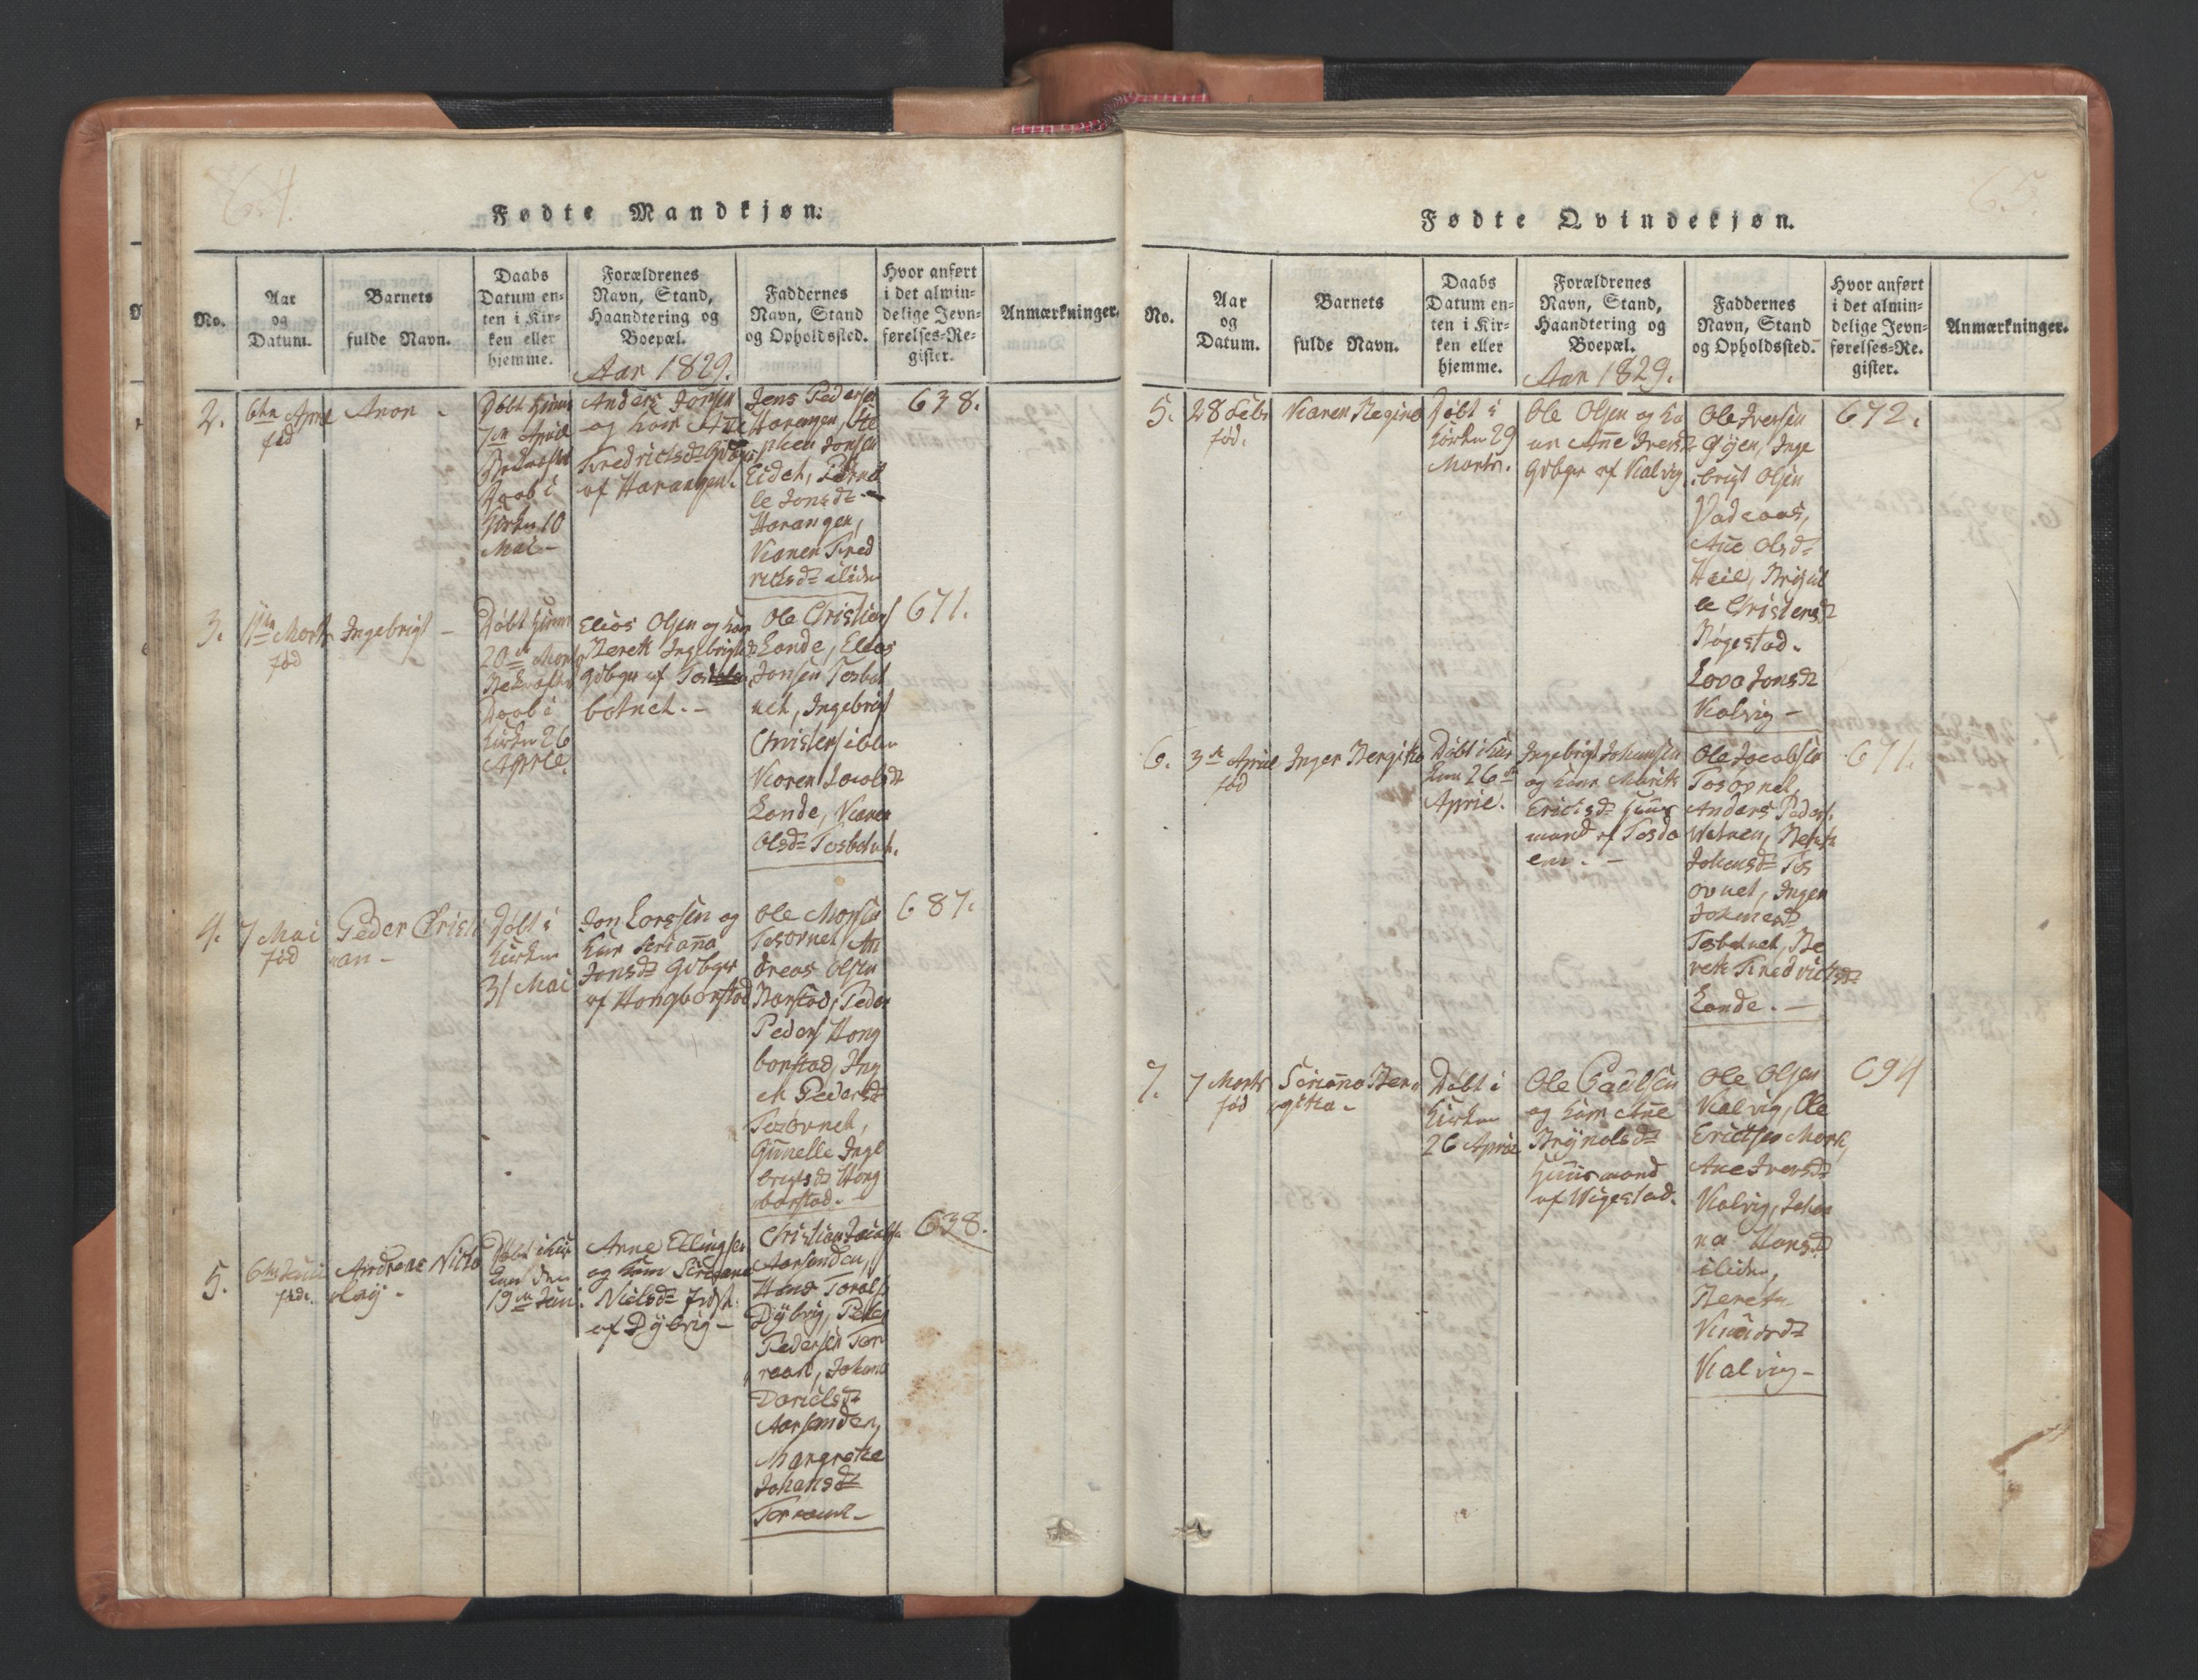 64.
Fødte Mandkjøn.
No.
Aar
og
Datum.
Barnets
fulde Navn.
Daabs
Datum en-
ten i Kir-
ken eller
hjemme.
Forældrenes
Navn, Stand,
Haandtering og
Boepæl.
Aar 1829.
Faddernes
Navn, Stand
og Opholdssted.
Hvor anført
i det almin-
delige Jevn-
førelses-Re-
gister.
Anmærkninger.
2.
6te April
fød
Aron
Døbt hiem
7de April
Daab i
Kirken 10
Mai -
Anders Jonsen
og Kone Ane
Fredrichsdr Gdbgr
af Harangen.
Jens Pedersen
Harangen, Ste
phen Jonsen
Eidet, Pernel
le Jonsdr -
Harangen,
Karen Fred
richsdr
638.
3.
Marts
fød
Ingebrigt -
Døbt hiem
20de Marts
Daab i
Kirken 26
April.
Elias Olsen og Kone
Berett Ingebrigtsdr
Gdbgr af Tos
botnet. -
Ole Christians
Lande, Elias
Jonsen Tosbot
net, Ingebrigt
Christens ibdm
Karen Jacobsdr
Lande, Karen
Olsdr Tosbotnet.
671.
4.
7 Mai
fød
Peder Christi
an -
Døbt i
Kirken
31 Mai
Jon Larssen og
Kone Serianna
Jonsdr Gdbgr
af Hongborstad
Ole Monsen
Tosovnet, An
dreas Olsen
Borstad, Peder
Peders Hong
borstad, Ing
er Pedersdr
Tosovnet,
Gunelle Inge
brigtsdr Hong
borstad.
687.
5.
6te Juni
fød.
Andreas Nico
lay -
Døbt i Kir
ken den
19de Juni.
Arne Ellingsen
og Kone Seriana
Nielsdr
af Dybvig -
Christian Jacobs
Aarsanden,
Hans Torals
Dybvig, Peder
Pedersen Tor
raak, Johana
Danielsdr
Aarsanden,
Margrethe
Johansdr
Torraak -
638.
65.
Fødte Qvindekjøn.
No.
Aar
og
Datum.
Barnets
fulde Navn.
Daabs
Datum en-
ten i Kir-
ken eller
hjemme.
Forældrenes
Navn, Stand,
Haandtering og
Boepæl.
Aar 1829.
Faddernes
Navn, Stand
og Opholdssted.
Hvor anført
i det almin-
delige Jevn-
førelses-Re-
gister.
Anmærkninger.
5.
28 Febr
fød.
Karen Regine
Døbt i
Kirken 29
Marts.
Ole Olsen og Ko
ne Ane Iversdr
Gdbgr af Kalvig
Ole Iversen
Øyen, Inge
brigt Olsen
Vadeaas,
Ane Olsdr
Heie, Birgit
le Christensdr
Røgestad.
Lova Jonsdr
Kalvig -
672.
6.
3de April
fød
Inger Bergitha
Døbt i Kir
ken 26de
April.
Ingebrigt Johansen
og Kone Marith
Erichsdr Huus
mand af Tosda
len. -
Ole Jacobsen
Tosovnet,
Anders Peders.
Vatnen, Berith
Johansdr Tos
ovnet, Inger
Johansdr
Tosbotnet, Be
reth Fredrichsdr
Lande. -
671.
7.
7 Marts
fød
Serianna Ber
githa -
Døbt i
Kirken
26 April
Ole Paulsen
og Kone Ane
Brynolsdr
Huusmand
af Wigestad.
Ole Olsen
Kalvig, Ole
Erichsen Mork,
Ane Iversdr
Kalvig, Johan
na Hansdr
Bereth
Knudsdr
Kalvig -
694